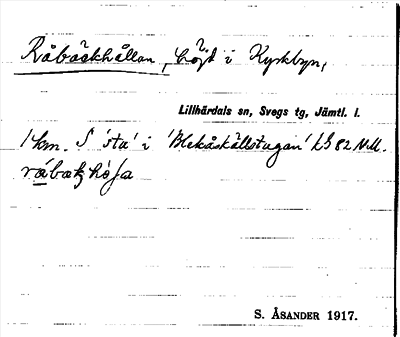 Råbäckhållan, höjd i Kyrkbyn,
Lillhärdals sn, Svegs tg, Jämtl. l.
1 km. S 'sta' i 'Blekåskällstugan' LS 82 N.M.
S. ÅSANDER 1917.